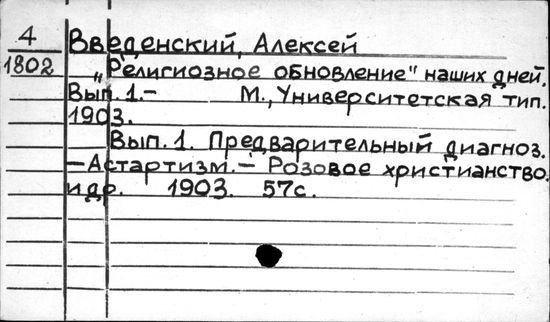 4
1802
Введенский, Алексей
„Религиозное обновление" наших дней.
Вып. 1.- М., Университетская тип.
1903.
Вып. 1. Предварительный диагноз.
-Астартизм.- Розовое христианство.
и др. 1903. 57с.